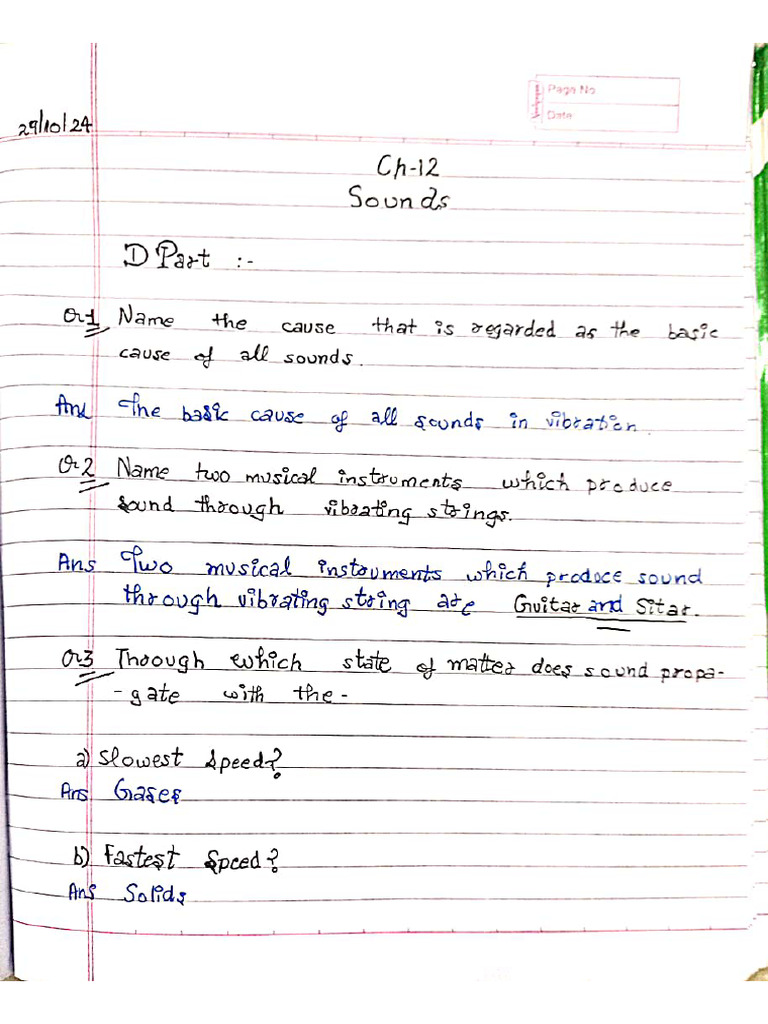 Page No
Date
29/10/24
Ch-12
Sounds
D Part :-
Qr1 Name the cause that is regarded as the basic
cause of all sounds.
Ans The basic cause of all sounds in vibration.
Qr2 Name two musical instruments which produce
sound through vibrating strings.
Ans Two musical instruments which produce sound
through vibrating string are Guitar and Sitar.
Qr3 Through which state of matter does sound propa-
-gate with the-
a) Slowest speed?
Ans Gases
b) Fastest speed?
Ans Solids